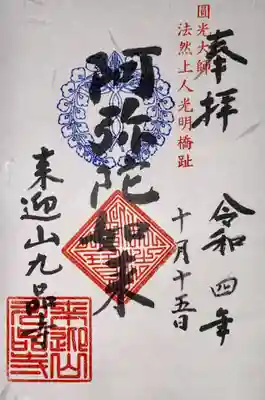 奉拝
令和四年
十月十五日
圓光大師
法然上人光明橋趾
阿弥陀如来
来迎山九品寺
来迎山
九品寺